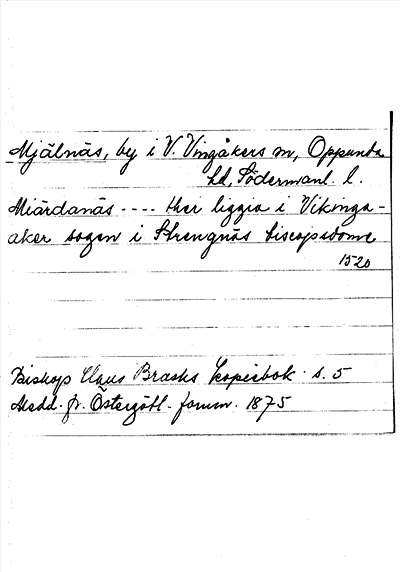 Mjälnäs, by i V. Vingåkers sn, Oppunda
hd, Södermanl. l.
Miärdanäs ---- ther liggia i Vikinga-
aker sogen i Strengnäs biscopsdome
1520
Biskop Claus Brasks kopiebok s. 5
Medd. fr. Östergötl. fornm. 1875